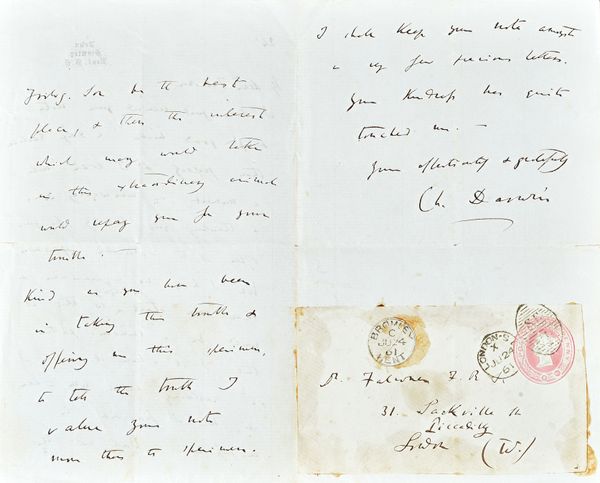 Down
Bromley
Kent. S.E.
for in the best
place, & then the interest
which many would take
in this extraordinary animal
would repay you for your
trouble. —
Kind as you have been
in taking this trouble &
offering me this specimen,
to tell the truth I
value your note
more than the specimen.
I shall keep your note amongst
a very few precious letters.
Your kindness has quite
touched me. —
Yours affectionately & gratefully
Ch. Darwin
BROMLEY
C
JU 24
61
KENT
LONDON-S
X
JU 24
61
Falconer F.R
31. Sackville St
Piccadilly
London (W.)